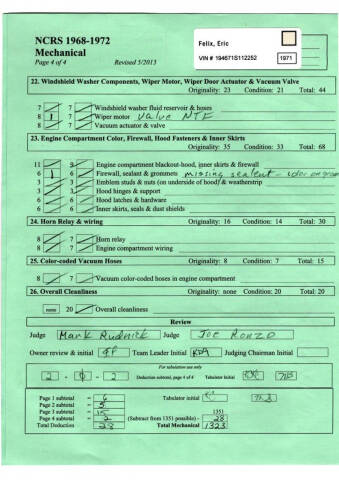 NCRS 1968-1972
Mechanical
Page 4 of 4 Revised 5/2013
Felix, Eric
VIN # 194671S112252 1971
22. Windshield Washer Components, Wiper Motor, Wiper Door Actuator & Vacuum Valve
Originality: 23 Condition: 21 Total: 44
7 7 Windshield washer fluid reservoir & hoses
8 1 7 Wiper motor Valve NTF
8 7 Vacuum actuator & valve
23. Engine Compartment Color, Firewall, Hood Fasteners & Inner Skirts
Originality: 35 Condition: 33 Total: 68
11 9 Engine compartment blackout-hood, inner skirts & firewall
6 1 6 Firewall, sealant & grommets missing sealent - color on
3 3 Emblem studs & nuts (on underside of hood) & weatherstrip
3 3 Hood hinges & support
6 6 Hood latches & hardware
6 6 Inner skirts, seals & dust shields
24. Horn Relay & wiring Originality: 16 Condition: 14 Total: 30
8 7 Horn relay
8 7 Engine compartment wiring
25. Color-coded Vacuum Hoses Originality: 8 Condition: 7 Total: 15
8 7 Vacuum color-coded hoses in engine compartment
26. Overall Cleanliness Originality: none Condition: 20 Total: 20
none 20 Overall cleanliness
Review
Judge Mark Rudnick Judge Joe Ronzo
Owner review & initial Team Leader Initial Judging Chairman Initial
For tabulation use only
2 - 0 = 2 Deduction subtotal, page 4 of 4 Tabulator Initial
Page 1 subtotal = 6 Tabulator initial
Page 2 subtotal = 5
Page 3 subtotal = 15 1351
Page 4 subtotal = 2 (Subtract from 1351 possible) - 28
Total Deduction 28 Total Mechanical 1323